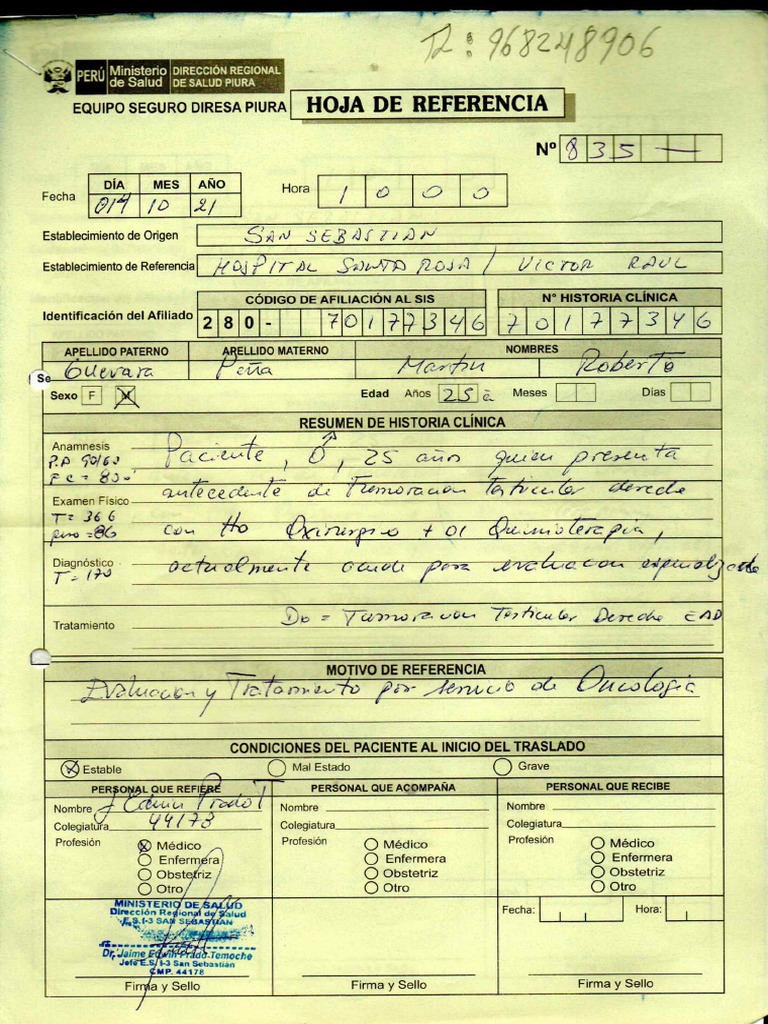 Tl: 968248906
PERÚ Ministerio de Salud DIRECCIÓN REGIONAL DE SALUD PIURA
EQUIPO SEGURO DIRESA PIURA HOJA DE REFERENCIA
Nº 835 —
DÍA MES AÑO
Fecha 014 10 21 Hora 1 0 0 0
Establecimiento de Origen SAN SEBASTIAN
Establecimiento de Referencia HOSPITAL SANTA ROSA / VICTOR RAUL
CÓDIGO DE AFILIACIÓN AL SIS N° HISTORIA CLÍNICA
Identificación del Afiliado 280- 70177346 70177346
APELLIDO PATERNO APELLIDO MATERNO NOMBRES
Guevara Peña Martin Roberto
Se
Sexo F M Edad Años 25 a Meses Días
RESUMEN DE HISTORIA CLÍNICA
Anamnesis Paciente, ♂, 25 años quien presenta
P.A 90/60
FC = 80x'
Examen Físico antecedente de Tumoracion Testicular derecha
T = 366
peso = 86 con Ho Qxirurgico + 01 Quimioterapia,
Diagnóstico actualmente acude para evaluacion especializada
T = 170
Tratamiento Dx = Tumoracion Testicular Derecha EAD
MOTIVO DE REFERENCIA
Evaluacion y Tratamiento por servicio de Oncologia
CONDICIONES DEL PACIENTE AL INICIO DEL TRASLADO
Estable Mal Estado Grave
PERSONAL QUE REFIERE PERSONAL QUE ACOMPAÑA PERSONAL QUE RECIBE
Nombre J Edwin Prado T Nombre Nombre
Colegiatura 44178 Colegiatura Colegiatura
Profesión Médico Profesión Médico Profesión Médico
Enfermera Enfermera Enfermera
Obstetriz Obstetriz Obstetriz
Otro Otro Otro
MINISTERIO DE SALUD
Dirección Regional de Salud
E.S. I-3 SAN SEBASTIAN
Fecha: Hora:
Dr. Jaime Edwin Prado Temoche
Jefe E.S. I-3 San Sebastián
CMP. 44178
Firma y Sello Firma y Sello Firma y Sello